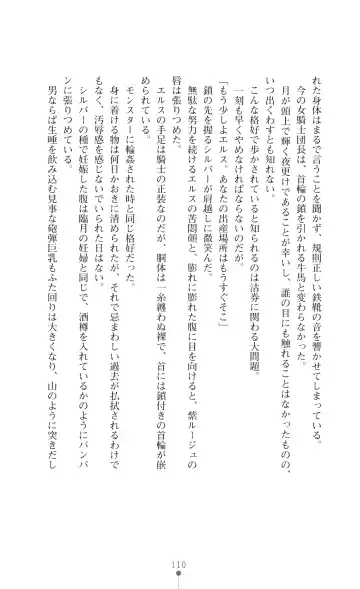 れた身体はまるで言うことを聞かず、規則正しい鉄靴の音を響かせてしまっている。
今の女騎士団長は、首輪の鎖を引かれる牛馬と変わらなかった。
月が頭上で輝く夜更けであることが幸いし、誰の目にも触れることはなかったものの、
いつ出くわすとも知れない。
こんな格好で歩かされていると知られるのは沽券に関わる大問題。
一刻も早くやめなければならないのだが。
「もう少しよエルス。あなたの出産場所はもうすぐそこ」
鎖の先を握るシルバーが肩越しに微笑んだ。
無駄な努力を続けるエルスの苦悶顔と、膨れに膨れた腹に目を向けると、紫ルージュの
唇は張りつめた。
エルスの手足は騎士の正装なのだが、胴体は一糸纏わぬ裸で、首には鎖付きの首輪が嵌
められている。
モンスターに輪姦された時と同じ格好だった。
身に着ける物は何日かおきに清められたが、それで忌まわしい過去が払拭されるわけで
もなく、汚辱感を感じないでいられた日はない。
シルバーの種で妊娠した腹は臨月の妊婦と同じで、酒樽を入れているかのようにパンパ
ンに張りつめている。
男ならば生唾を飲み込む見事な砲弾巨乳もふた回りは大きくなり、山のように突きだし
110